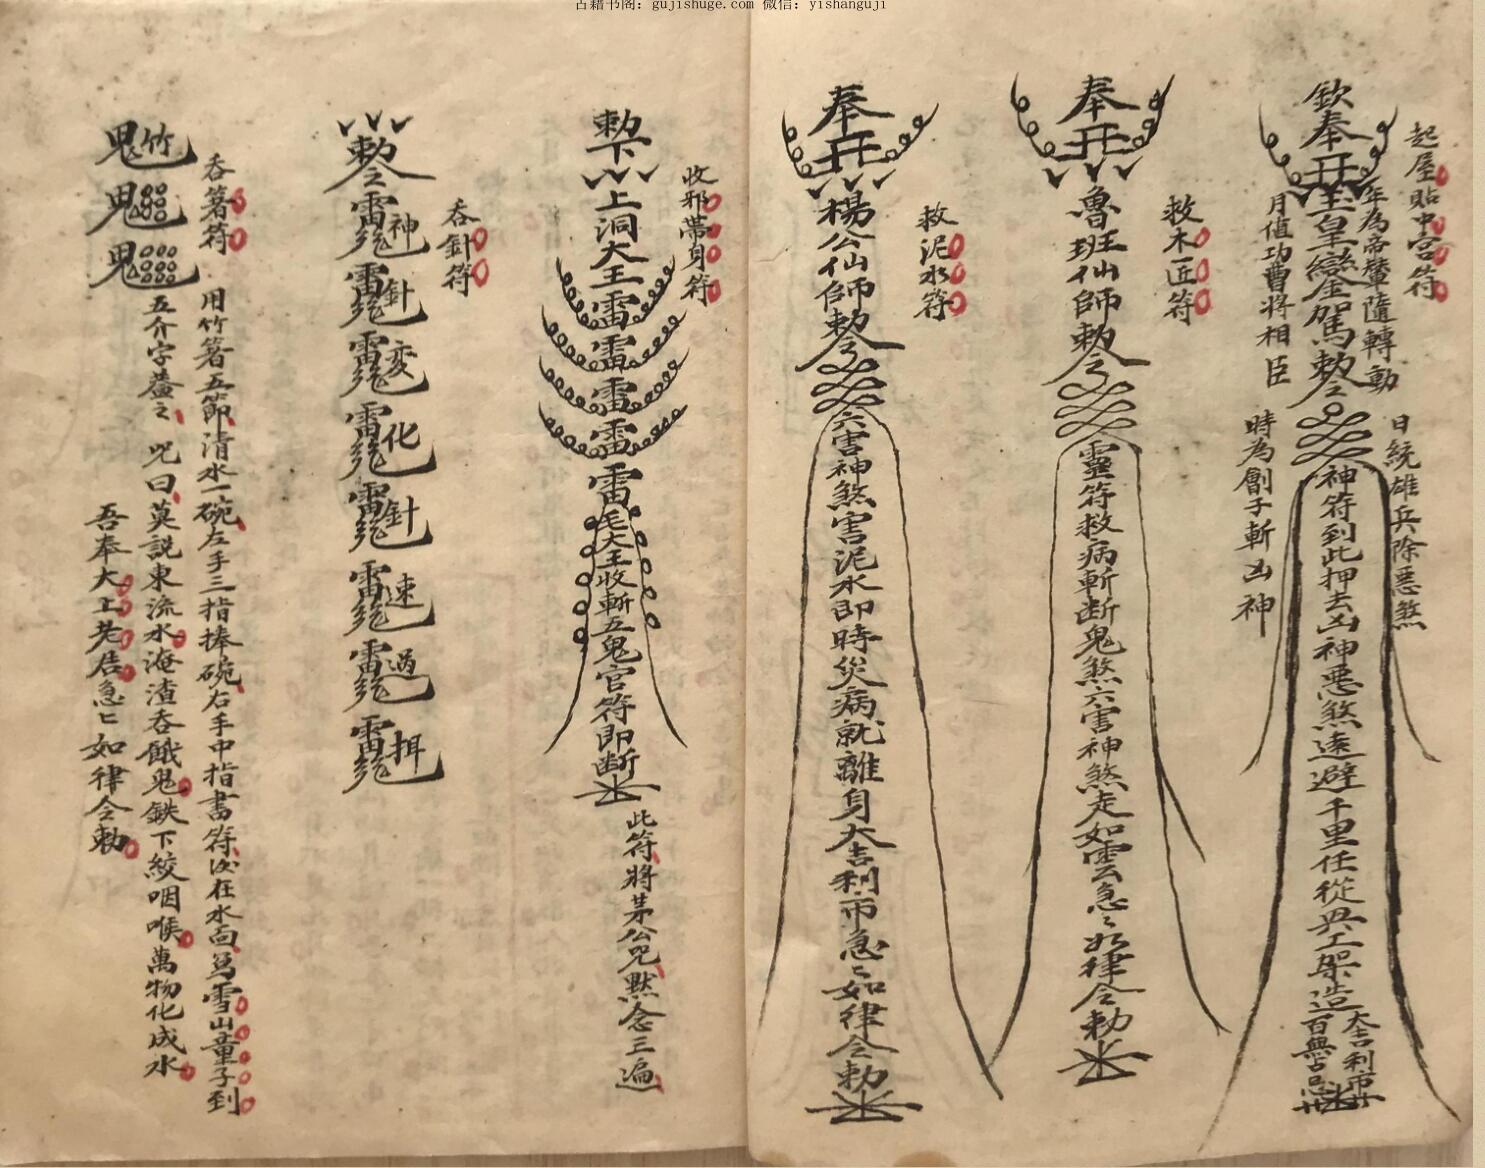 古籍书阁：gujishuge.com 微信：yishanguji
起屋貼中宮符
欽奉
玉皇鑾金駕勅令
年為帝輦隨轉動
月值功曹將相臣
日統雄兵除惡煞
時為劊子斬凶神
神符到此押去凶神惡煞遠避千里任從興工架造
大吉利市
百無占忌
救木匠符
奉
魯班仙師勅令
靈符救病斬断鬼煞六害神煞走如雲急〻如律令勅
救泥水符
奉
楊公仙師勅令
六害神煞害泥水即時災病就離身大吉利市急〻如律令勅
收邪帶身符
勅下
上洞大王雷雷雷雷雷
毛大王收斬五鬼官符即断
此符將茅公咒默念三遍
吞針符
勅令
神針变化針速過
吞箸符
用竹箸五節清水一碗左手三指捧碗右手中指書符必在水面寫雪山童子到
五介字蓋之 咒曰莫説東流水淹渣吞餓鬼鉄下絞咽喉萬物化成水
吾奉太上老君急〻如律令勅